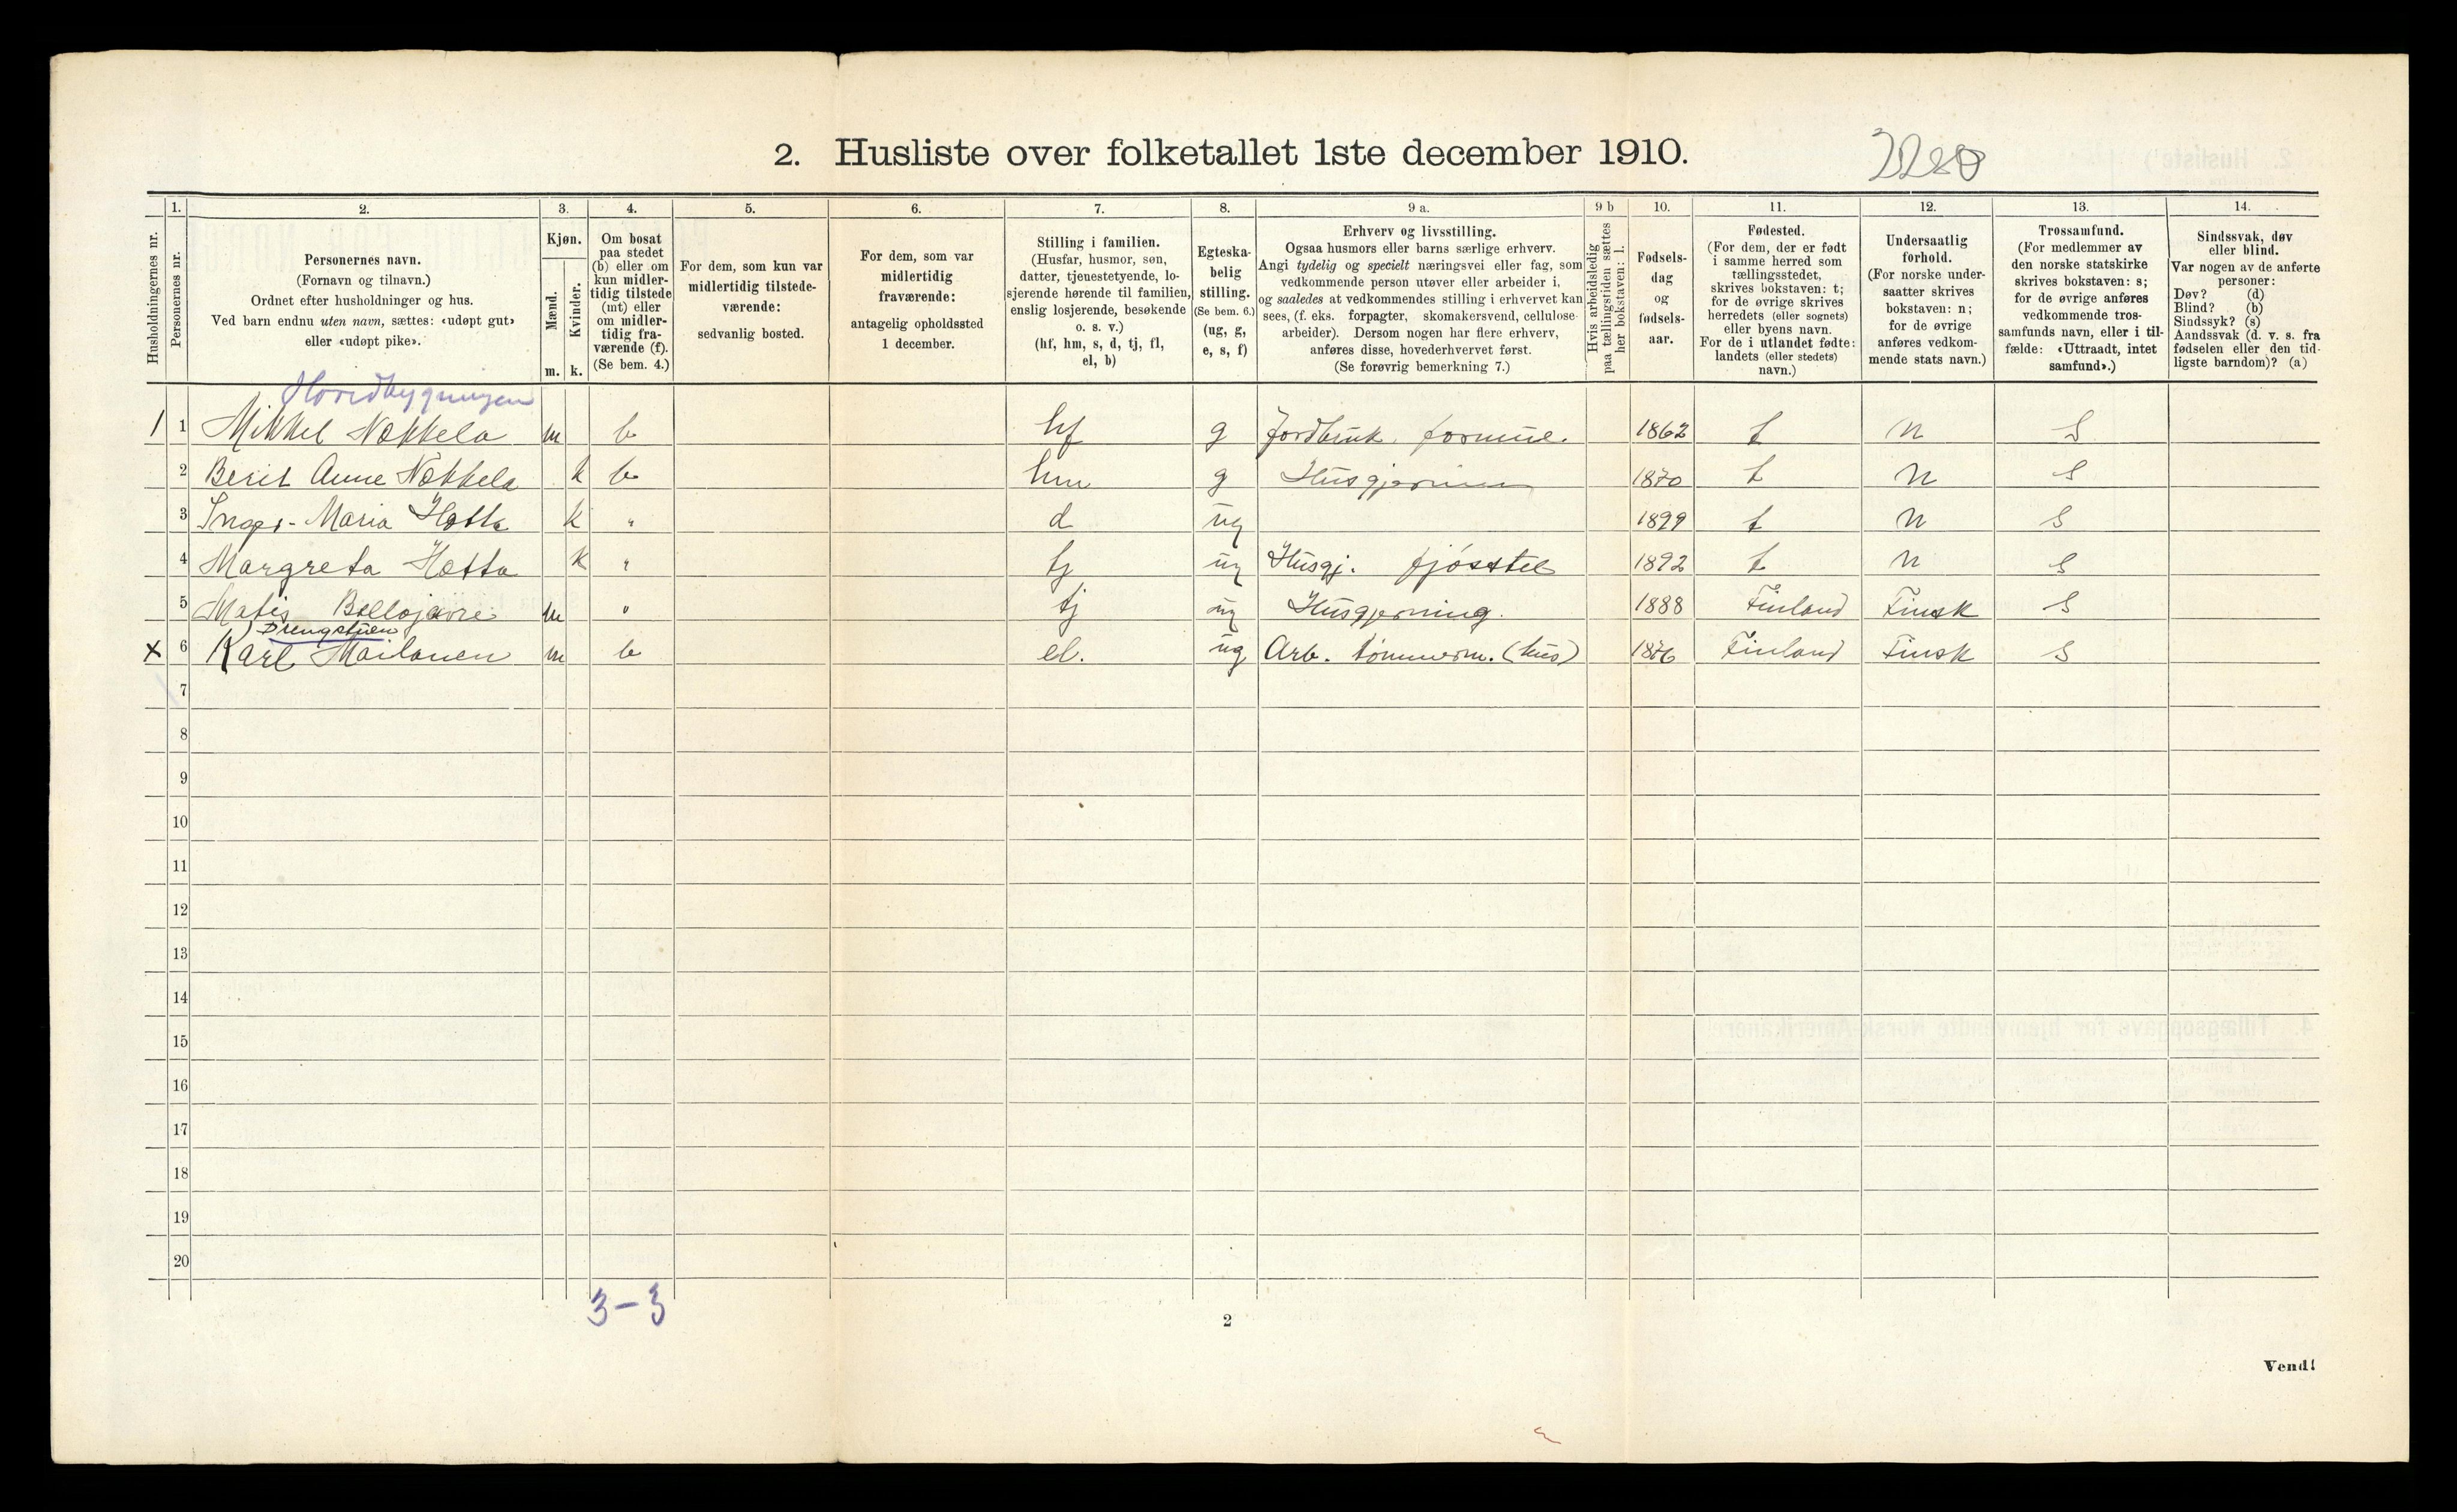 2. Husliste over folketallet 1ste december 1910.
Husholdningernes nr.
1.
Personernes nr.
2.
Personernes navn.
(Fornavn og tilnavn.)
Ordnet efter husholdninger og hus.
Ved barn endnu uten navn, sættes: «udøpt gut»
eller «udøpt pike».
3.
Kjøn.
Mænd.
Kvinder.
m. k.
4.
Om bosat
paa stedet
(b) eller om
kun midler-
tidig tilstede
(mt) eller
om midler-
tidig fra-
værende (f).
(Se bem. 4.)
5.
For dem, som kun var
midlertidig tilstede-
værende:
sedvanlig bosted.
6.
For dem, som var
midlertidig
fraværende:
antagelig opholdssted
1 december.
7.
Stilling i familien.
(Husfar, husmor, søn,
datter, tjenestetyende, lo-
sjerende hørende til familien,
enslig losjerende, besøkende
o. s. v.)
(hf, hm, s, d, tj, fl,
el, b)
8.
Egteska-
belig
stilling.
(Se bem. 6.)
(ug, g,
e, s, f)
9 a.
Erhverv og livsstilling.
Ogsaa husmors eller barns særlige erhverv.
Angi tydelig og specielt næringsvei eller fag, som
vedkommende person utøver eller arbeider i,
og saaledes at vedkommendes stilling i erhvervet kan
sees, (f. eks. forpagter, skomakersvend, cellulose-
arbeider). Dersom nogen har flere erhverv,
anføres disse, hovederhvervet først.
(Se forøvrig bemerkning 7.)
9 b
Hvis arbeidsledig
paa tællingstiden sættes
her bokstaven: l.
10.
Fødsels-
dag
og
fødsels-
aar.
11.
Fødested.
(For dem, der er født
i samme herred som
tællingsstedet,
skrives bokstaven: t;
for de øvrige skrives
herredets (eller sognets)
eller byens navn.
For de i utlandet fødte:
landets (eller stedets)
navn.)
12.
Undersaatlig
forhold.
(For norske under-
saatter skrives
bokstaven: n;
for de øvrige
anføres vedkom-
mende stats navn.)
13.
Trossamfund.
(For medlemmer av
den norske statskirke
skrives bokstaven: s;
for de øvrige anføres
vedkommende tros-
samfunds navn, eller i til-
fælde: «Uttraadt, intet
samfund».)
14.
Sindssvak, døv
eller blind.
Var nogen av de anførte
personer:
Døv? (d)
Blind? (b)
Sindssyk? (s)
Aandssvak (d. v. s. fra
fødselen eller den tid-
ligste barndom)? (a)
Hovedbygningen
1 1 Mikkel Nækkela m b hf g Jordbruk. formue. 1862 t n S
2 Berit Anne Nækkela k b hm g Husgjerning 1870 t n S
3 Inger-Maria Hætta k " d ug 1899 t n S
4 Margreta Hætta k " tj ug Husgj. fjösstel 1892 t n S
5 Matis m " tj ug Husgjerning. 1888 Finland Finsk S
Drengstuen
x 6 Karl Mailanen m b el. ug Arb. tømmerm. (hus) 1876 Finland Finsk S
7
8
9
10
11
12
13
14
15
16
17
18
19
20
3-3
2
Vend!